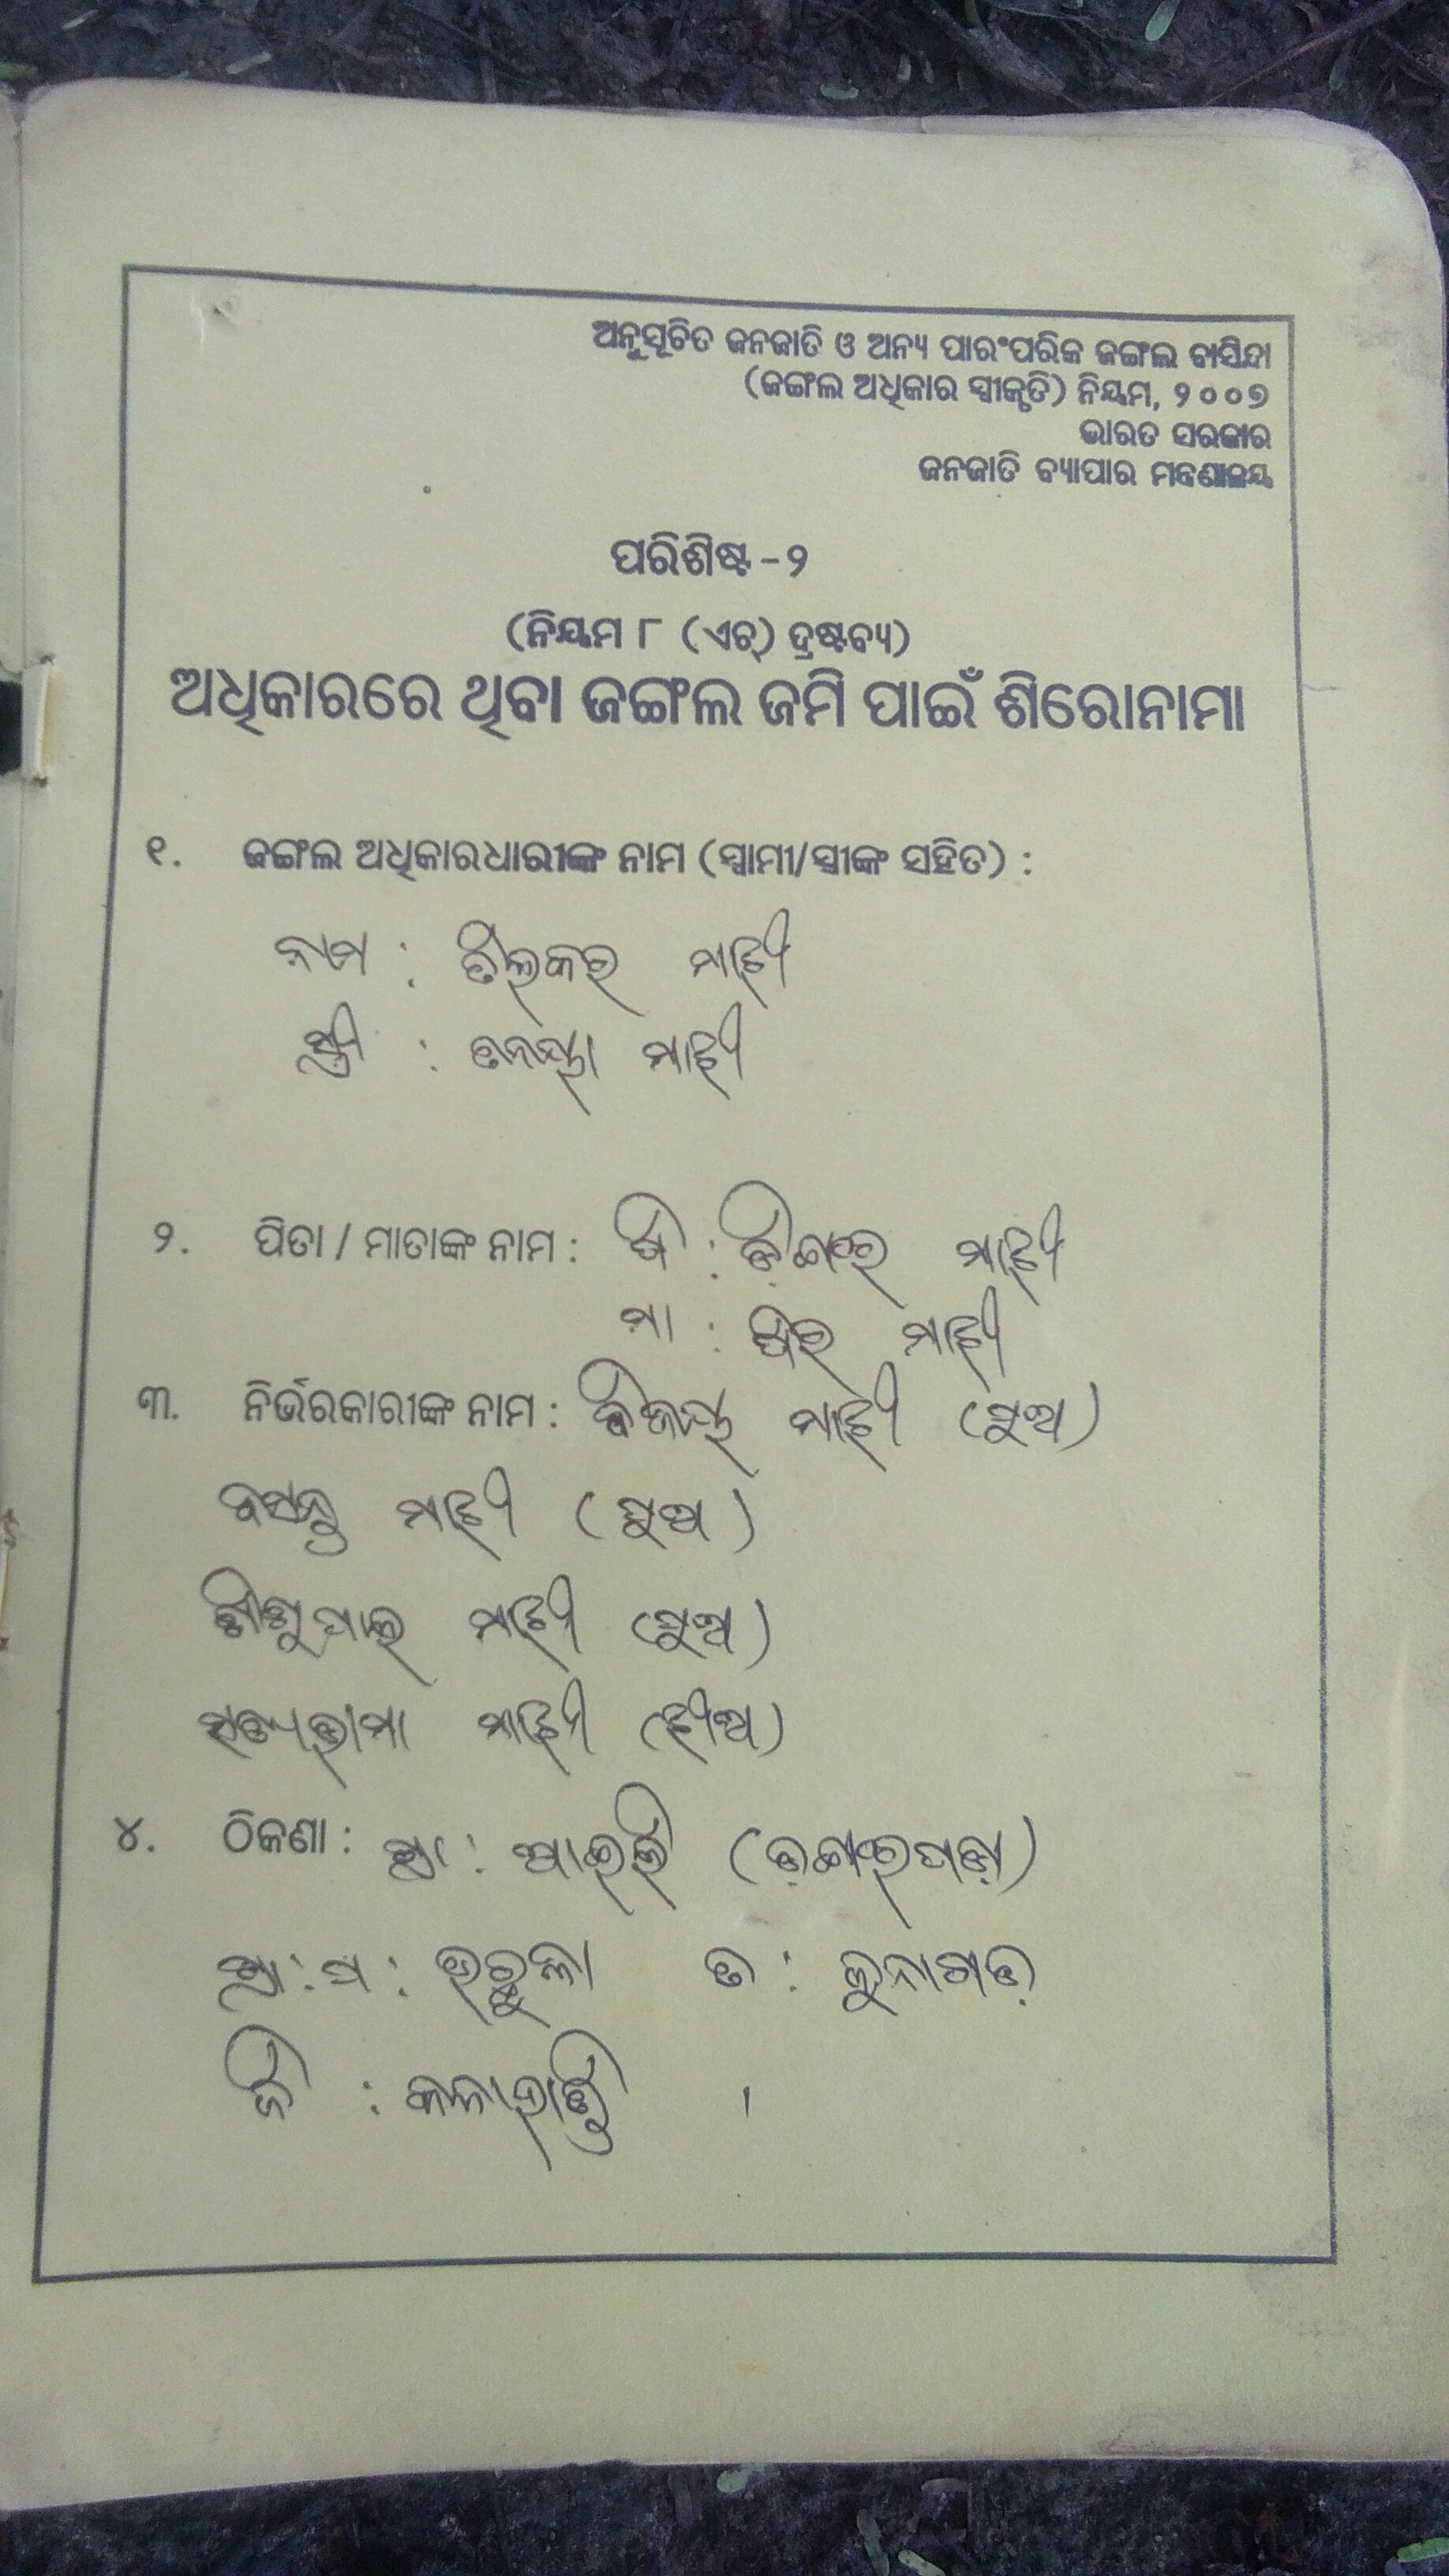 ଅନୁସୂଚିତ ଜନଜାତି ଓ ଅନ୍ୟ ପାରଂପରିକ ଜଙ୍ଗଲ ବାସିନ୍ଦା
(ଜଙ୍ଗଲ ଅଧିକାର ସ୍ୱୀକୃତି) ନିୟମ, ୨୦୦୭
ଭାରତ ସରକାର
ଜନଜାତି ବ୍ୟାପାର ମନ୍ତ୍ରଣାଳୟ
ପରିଶିଷ୍ଟ - ୨
(ନିୟମ ୮ (ଏଚ୍) ଦ୍ରଷ୍ଟବ୍ୟ)
ଅଧିକାରରେ ଥିବା ଜଙ୍ଗଲ ଜମି ପାଇଁ ଶିରୋନାମା
୧. ଜଙ୍ଗଲ ଅଧିକାରଧାରୀଙ୍କ ନାମ (ସ୍ୱାମୀ/ସ୍ତ୍ରୀଙ୍କ ସହିତ) :
ନାମ : ତିଲକର ମାଝୀ
ସ୍ତ୍ରୀ : ମାଝୀ
୨. ପିତା / ମାତାଙ୍କ ନାମ : ପି : ମାଝୀ
ମା : ମାଝୀ
୩. ନିର୍ଭରକାରୀଙ୍କ ନାମ : ବିଜୟ ମାଝୀ (ପୁଅ)
ବସନ୍ତ ମାଝୀ (ପୁଅ)
ଶିଶୁପାଲ ମାଝୀ (ପୁଅ)
ସତ୍ୟଭାମା ମାଝୀ (ଝିଅ)
୪. ଠିକଣା : ଗ୍ରା :
ଗ୍ରା : ପ : ତ :
ଜି : କଳାହାଣ୍ଡି ।